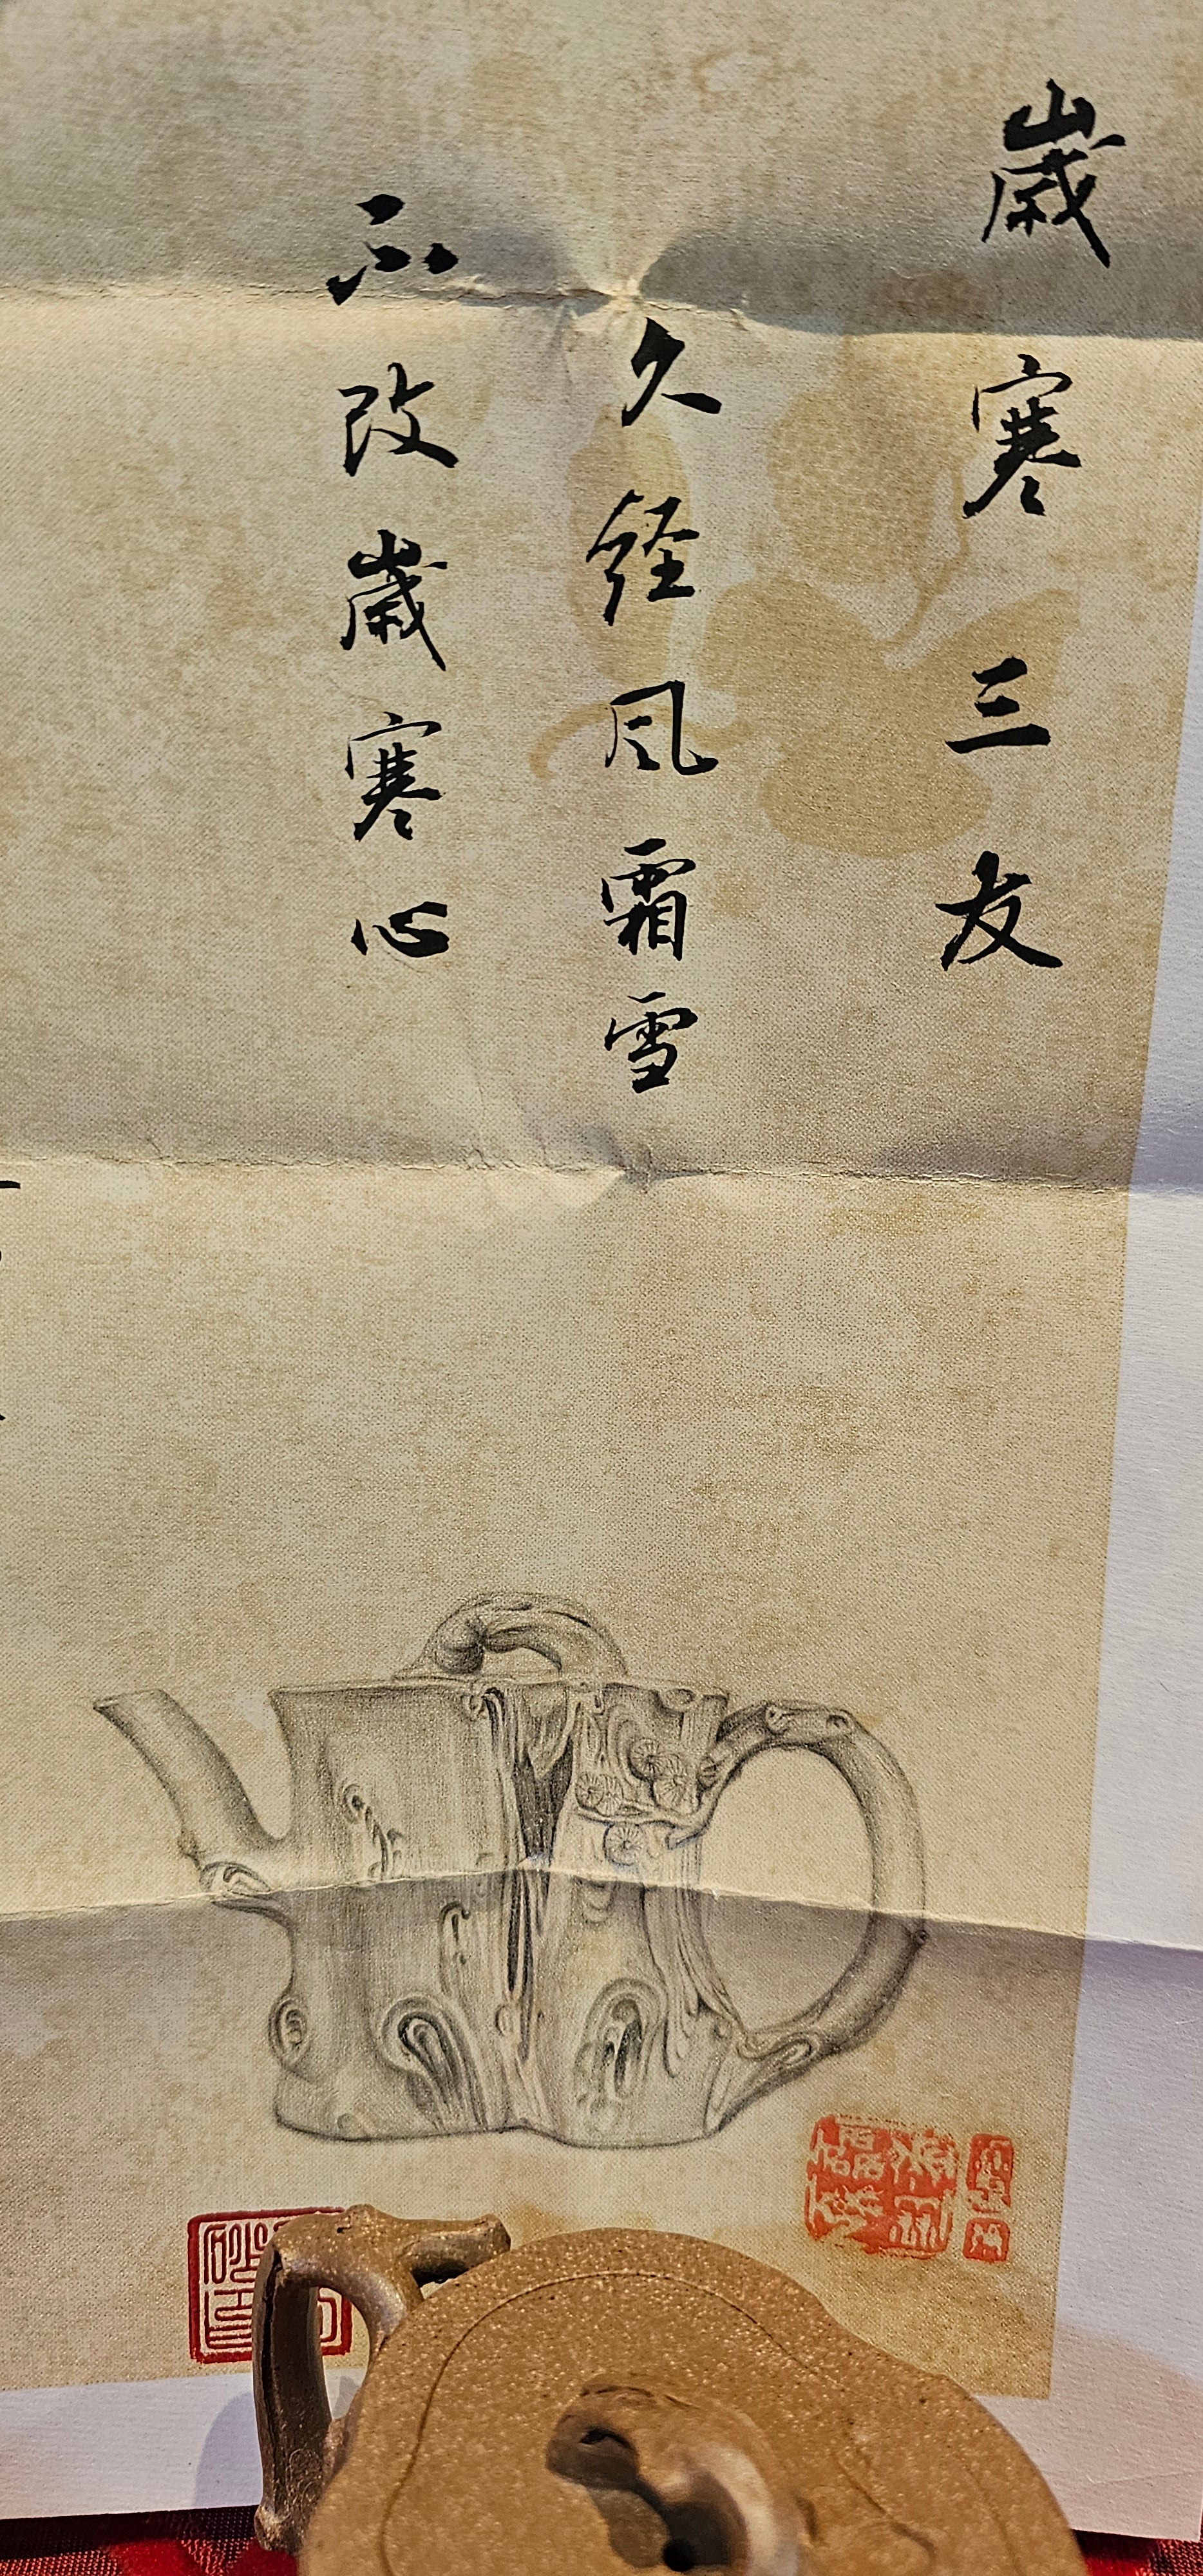 歲寒三友
久经风霜雪
不改歲寒心